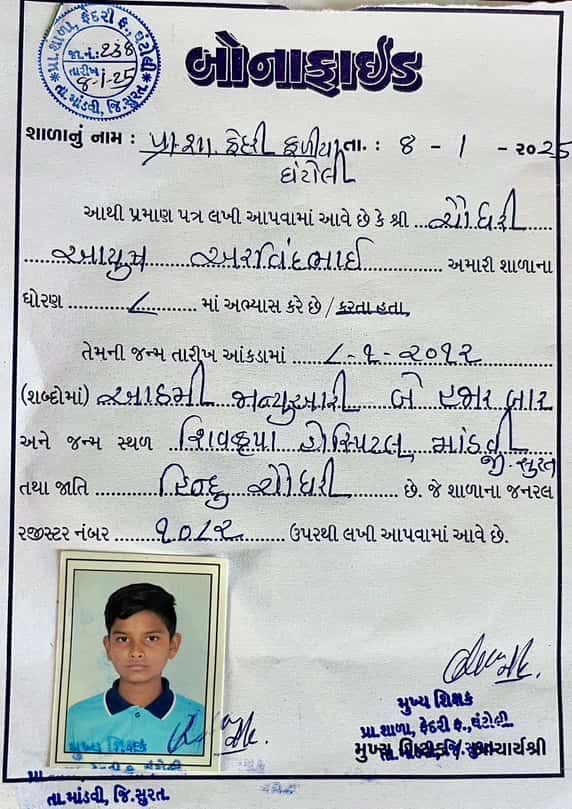 પ્રા.શાળા, ફેદરી ફ., ઘંટોલી
જા.નં.: 238
તારીખ
8-1-25
તા.માંડવી, જિ.સુરત.
બોનાફાઈડ
શાળાનું નામ : પ્રા.શા. ફેદરી ફળીયા તા. : ૪ - ૧ - ૨૦25
ઘંટોલી
આથી પ્રમાણ પત્ર લખી આપવામાં આવે છે કે શ્રી ચૌધરી
આયુષ અરવિંદભાઈ અમારી શાળાના
ધોરણ ૮ માં અભ્યાસ કરે છે / કરતા હતા.
તેમની જન્મ તારીખ આંકડામાં ૮-૧-૨૦૧૨
(શબ્દોમાં) આઠમી જાન્યુઆરી બે હજાર બાર
અને જન્મ સ્થળ શિવકૃપા હોસ્પિટલ, માંડવી
જી. સુરત
તથા જાતિ હિન્દુ ચૌધરી છે. જે શાળાના જનરલ
રજીસ્ટર નંબર ૧૦૮૨ ઉપરથી લખી આપવામાં આવે છે.
મુખ્ય શિક્ષક
પ્રા.શાળા, ફેદરી ફ., ઘંટોલી
મુખ્ય શિક્ષક / આચાર્યશ્રી
મુખ્ય શિક્ષક
તા.માંડવી, જિ.સુરત.